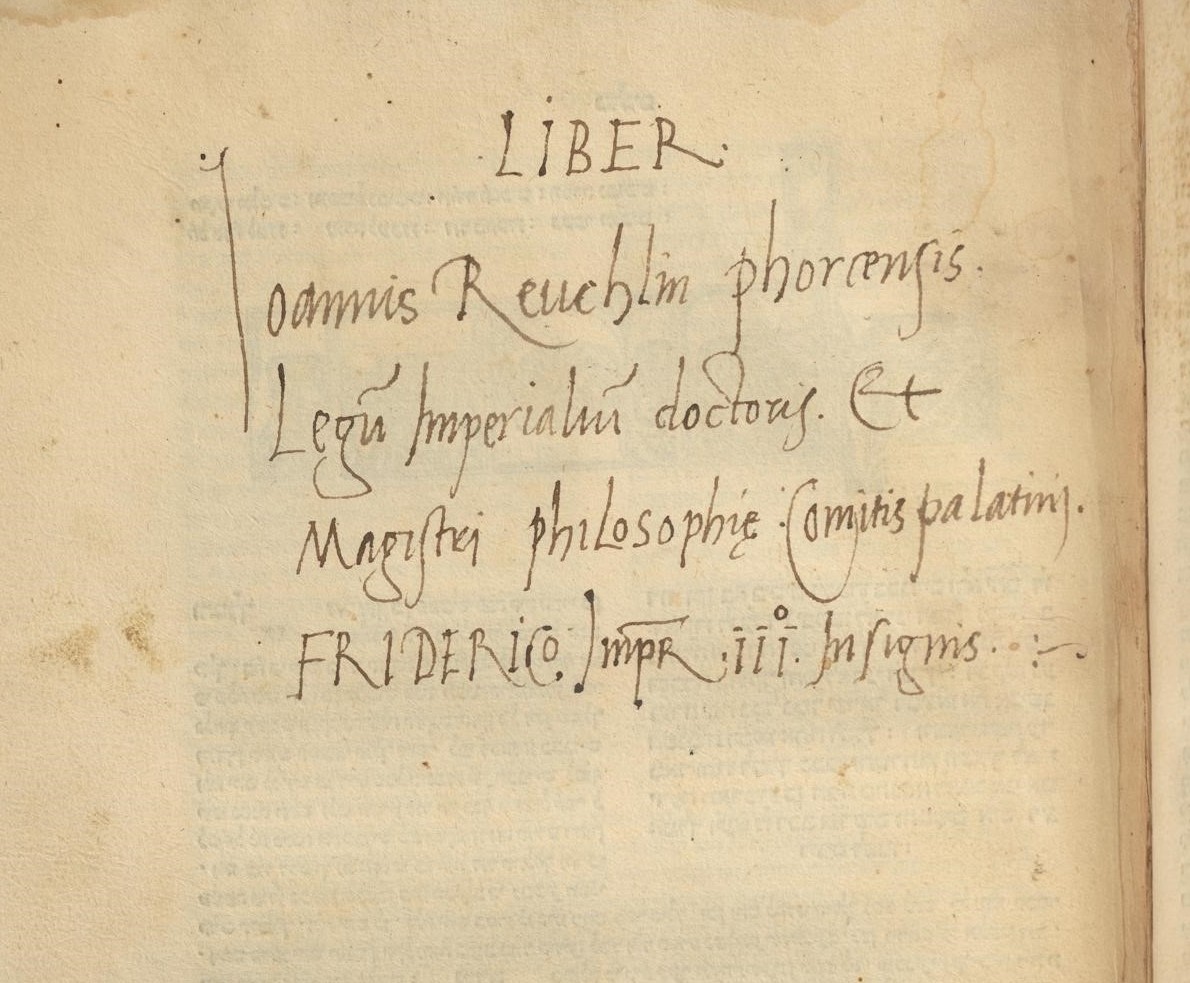 LIBER.
Ioannis Reuchlin phorcensis.
Legū Imperialiū doctoris. Et
Magistri philosophię Comitis palatinj.
FRIDERICO Impr̄ .iii°. Insignis.